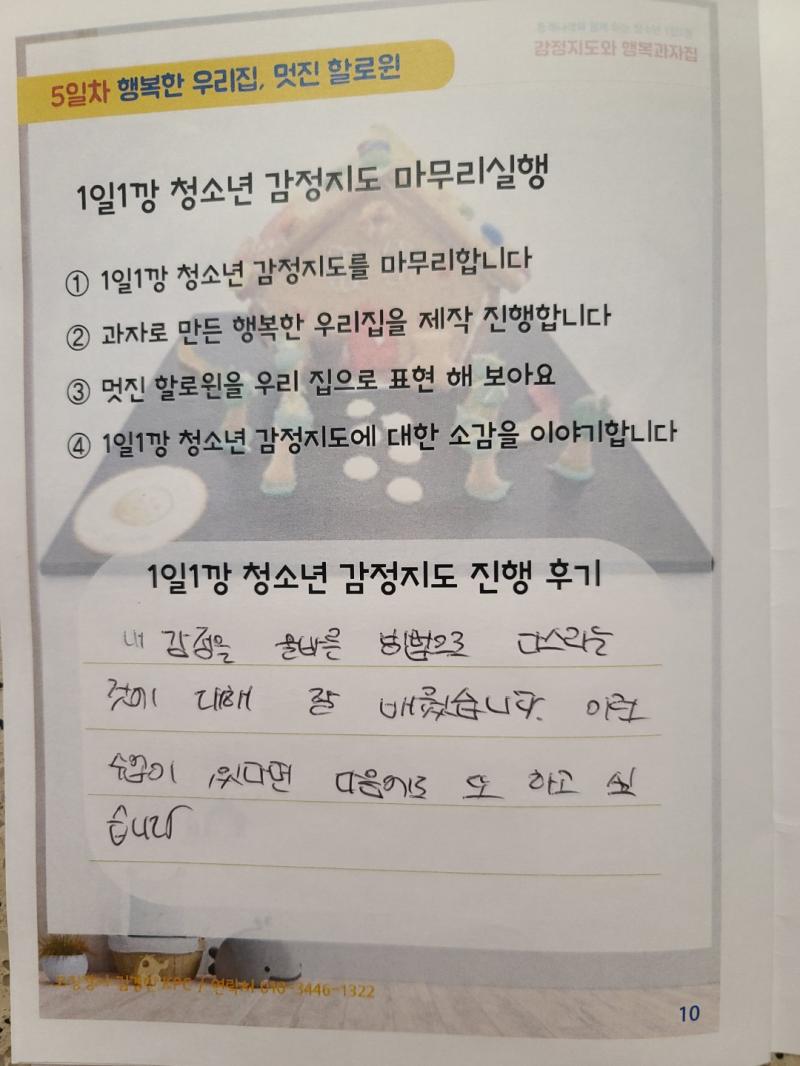 감정지도와 행복과자집
5일차 행복한 우리집, 멋진 할로윈
1일1깡 청소년 감정지도 마무리실행
① 1일1깡 청소년 감정지도를 마무리합니다
② 과자로 만든 행복한 우리집을 제작 진행합니다
③ 멋진 할로윈을 우리 집으로 표현 해 보아요
④ 1일1깡 청소년 감정지도에 대한 소감을 이야기합니다
1일1깡 청소년 감정지도 진행 후기
내 감정을 올바른 방법으로 다스리는
것에 대해 잘 배웠습니다. 이런
수업이 있다면 다음에도 또 하고 싶
습니다
/ 연락처 010-3446-1322
10